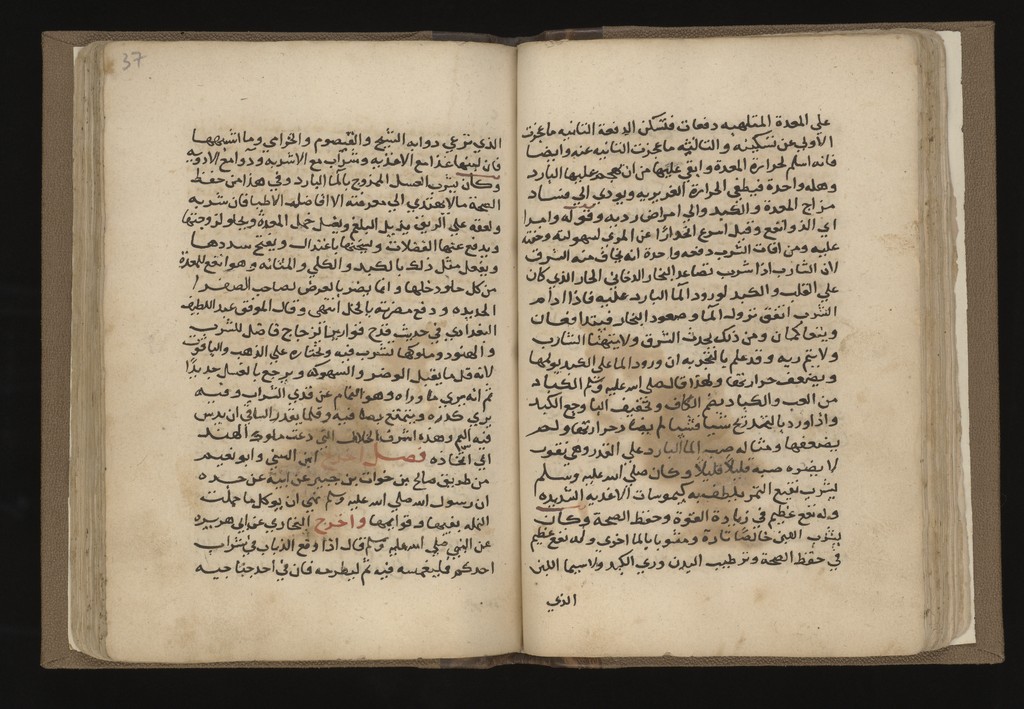 على المعدة الملتهبه دفعات فتسكن الدفعة الثانيه ما عجزت
الأولى عن تسكينه والثالثه ما عجزت الثانيه عنه وايضا
فانه اسلم لحرارة المعدة وابقى عليها من ان يهجم عليها البارد
وهله واحدة فيطفي الحرارة الغريزيه ويودي الي فساد
مزاج المعدة والكبد والي امراض رديه وقوله وامرا
اي الذ وانفع وقيل اسرع انحدارًا عن المري لسهولته وخفته
عليه ومن افات الشرب دفعه واحدة انه يخاف منه الشرق
لان الشارب اذا شرب تصاعد البخار الدخاني الحار الذي كان
علي القلب والكبد لورود الما البارد عليه فاذا ادام
الشرب اتفق نزول الما وصعود البخار فيتدافعان
ويتعاكسان ومن ذلك يحدث الشرق ولا يتهنا الشارب
ولا يتم ريه وقد علم بالتجربه ان ورود الما علي الكبد يولمها
ويضعف حرارتها ولهذا قال صلي الله عليه وسلم الكباد
من العب والكباد بضم الكاف وتخفيف البا وجع الكبد
واذا ورد بالتدريج شيأ فشيأ لم يضاد حرارتها ولم
يضعفها ومثاله صب الما البارد علي القدر وهي تفور
لا يضره صبه قليلاً قليلاً وكان صلي الله عليه وسلم
يشرب نقيع التمر يلطف به كيموسات الاغذيه الشديده
وله نفع عظيم في زيادة القوة وحفظ الصحة وكان
يشرب اللبن خالصًا تارة ومشوبا بالما اخري وله نفع عظيم
في حفظ الصحة وترطيب البدن وري الكبد ولا سيما اللبن
الذي
37
الذي ترعي دوابه الشيح والقيصوم والخزامي وما اشبهها
فان لبنها غذا مع الاغذيه وشراب مع الاشربه ودوا مع الادويه
وكان يشرب العسل الممزوج بالما البارد وفي هذا من حفظ
الصحة ما لا يهتدي الي معرفته الا افاضل الاطبا فان شربه
ولعقه علي الريق يذيب البلغم ويغسل خمل المعدة ويجلو لزوجتها
ويدفع عنها الفضلات ويسخنها باعتدال ويفتح سددها
ويفعل مثل ذلك بالكبد والكلي والمثانه وهو انفع للمعدة
من كل حلو دخلها وانما يضر بالعرض لصاحب الصفرا
الحديده ودفع مضرته بالخل انتهي وقال الموفق عبد اللطيف
البغدادي في حديث قدح قوارير الزجاج فاضل للشرب
والهنود وملوكها تشرب فيه وتختاره علي الذهب والياقوت
لانه قل ما يقبل الوضر والسهوكه ويرجع بالغسل جديدًا
ثم انه يري ما وراه وهو النمام عن قذي الشراب وفيه
يري كدره ويتمتع بصفا فيه وقلما يقدر الساقي ان يدس
فيه السم وهذه اشرف الخلال التي دعت ملوك الهند
الي اتخاذه فصل اخرج ابن السني وابو نعيم
من طريق صالح بن خوات بن جبير عن ابيه عن جده
ان رسول الله صلي الله عليه وسلم نهي ان يوكل ما حملت
النمله بفيها وقوايمها واخرج البخاري عن ابي هريره
عن النبي صلي الله عليه وسلم قال اذا وقع الذباب في شراب
احدكم فليغمسه فيه ثم ليطرحه فان في احد جناحيه